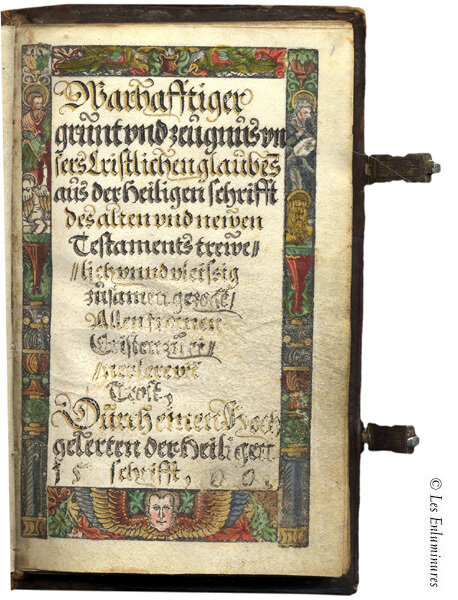 Warhafftiger
grunt vnd zeugnus vn
sers Cristlichen glaubes̄
aus der Heiligen schrifft
des alten vnd newen
Testaments trewe//
//lich vnnd vleissig
zusamen gezoge/
Allen fromen
Cristen zu ei/
Trost,
Durch einen Hoch
gelerten der Heiligen
schrifft,
© Les Enluminures